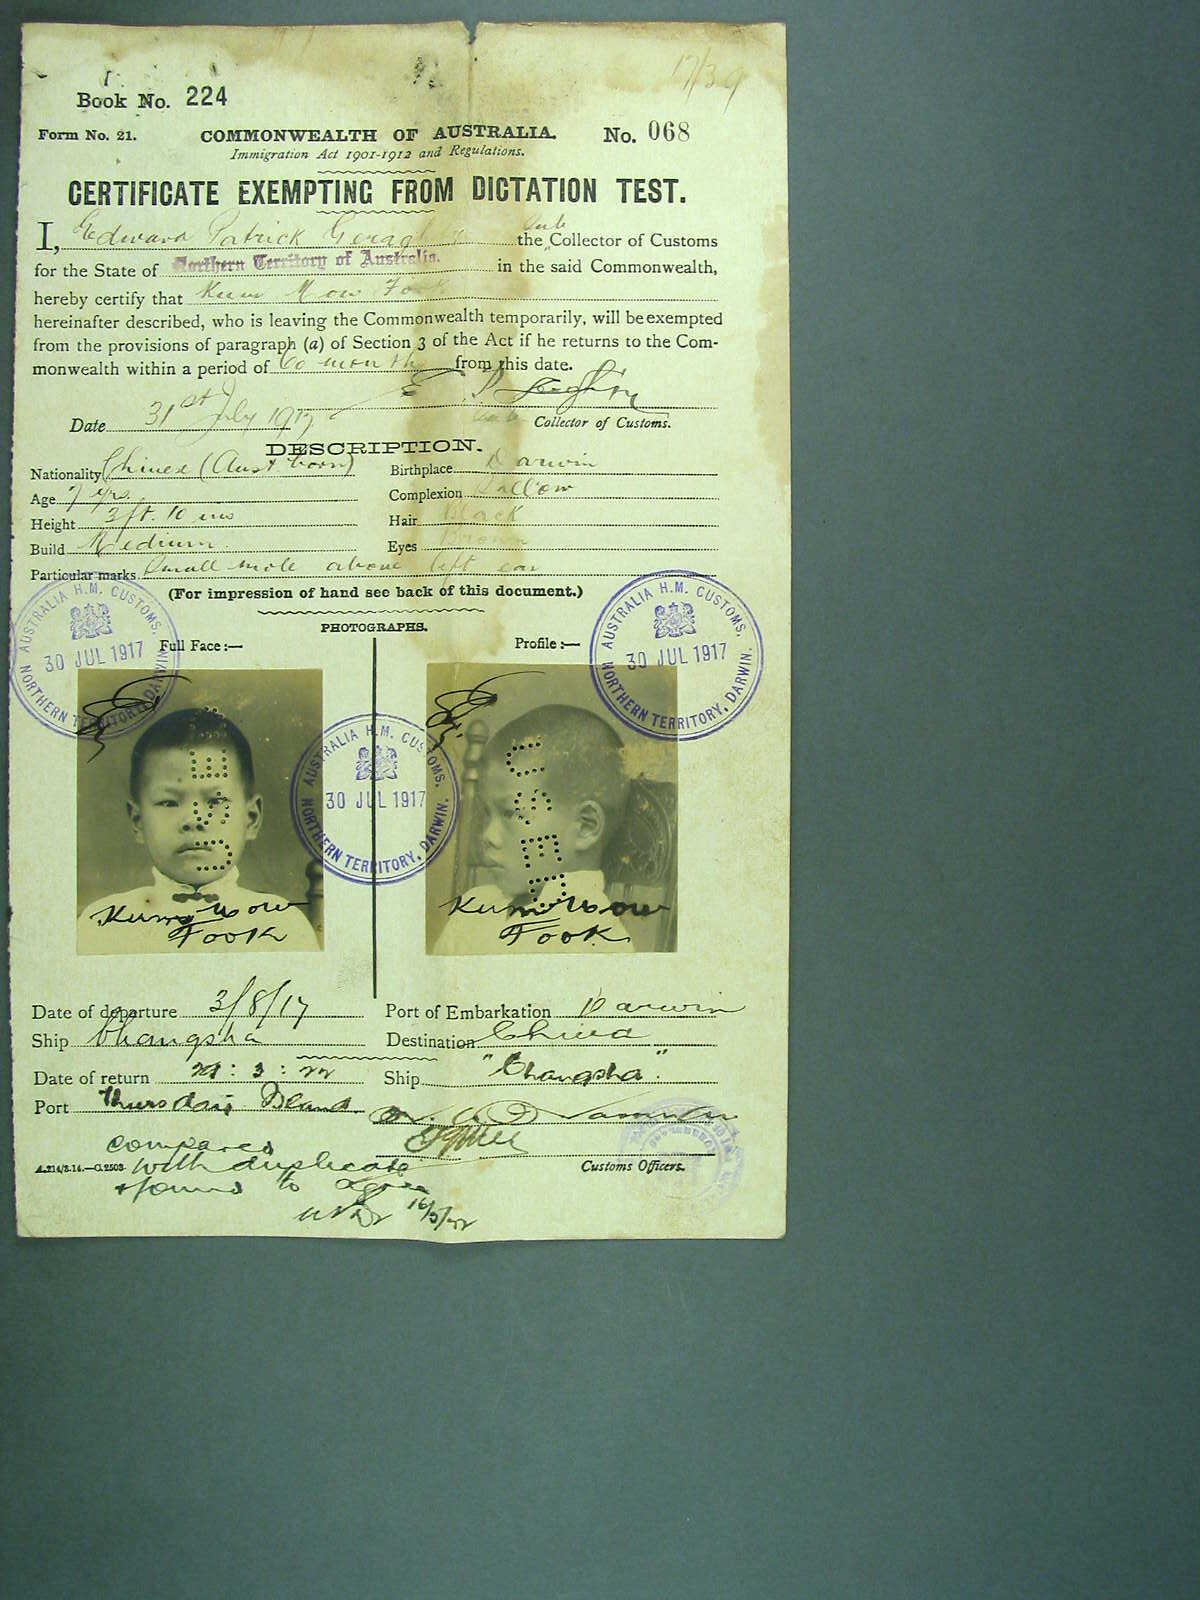 17/39
Book No. 224
Form No. 21. COMMONWEALTH OF AUSTRALIA. No. 068
Immigration Act 1901-1912 and Regulations.
CERTIFICATE EXEMPTING FROM DICTATION TEST.
I, Edward Patrick the Sub Collector of Customs
for the State of Northern Territory of Australia. in the said Commonwealth,
hereby certify that Kum Mow Fook
hereinafter described, who is leaving the Commonwealth temporarily, will be exempted
from the provisions of paragraph (a) of Section 3 of the Act if he returns to the Com-
monwealth within a period of 60 months from this date.
Date 31st July 1917 Sub Collector of Customs.
DESCRIPTION.
Nationality Chinese (Aust born) Birthplace Darwin
Age 7 yrs. Complexion Sallow
Height 3 ft. 10 ins Hair Black
Build Medium. Eyes Brown
Particular marks Small mole above left ear
(For impression of hand see back of this document.)
PHOTOGRAPHS.
Full Face:— Profile:—
AUSTRALIA H.M. CUSTOMS. 30 JUL 1917 NORTHERN TERRITORY, DARWIN.
AUSTRALIA H.M. CUSTOMS. 30 JUL 1917 NORTHERN TERRITORY, DARWIN.
AUSTRALIA H.M. CUSTOMS. 30 JUL 1917 NORTHERN TERRITORY, DARWIN.
USED USED
Kum Mow Kum Mow
Fook Fook
Date of departure 3/8/17 Port of Embarkation Darwin
Ship Changsha Destination China
Date of return 29:3:22 Ship "Changsha".
Port Thursday Island
compared
A.214/3.14.—C.2503. with duplicate Customs Officers.
& found to agree
16/5/22